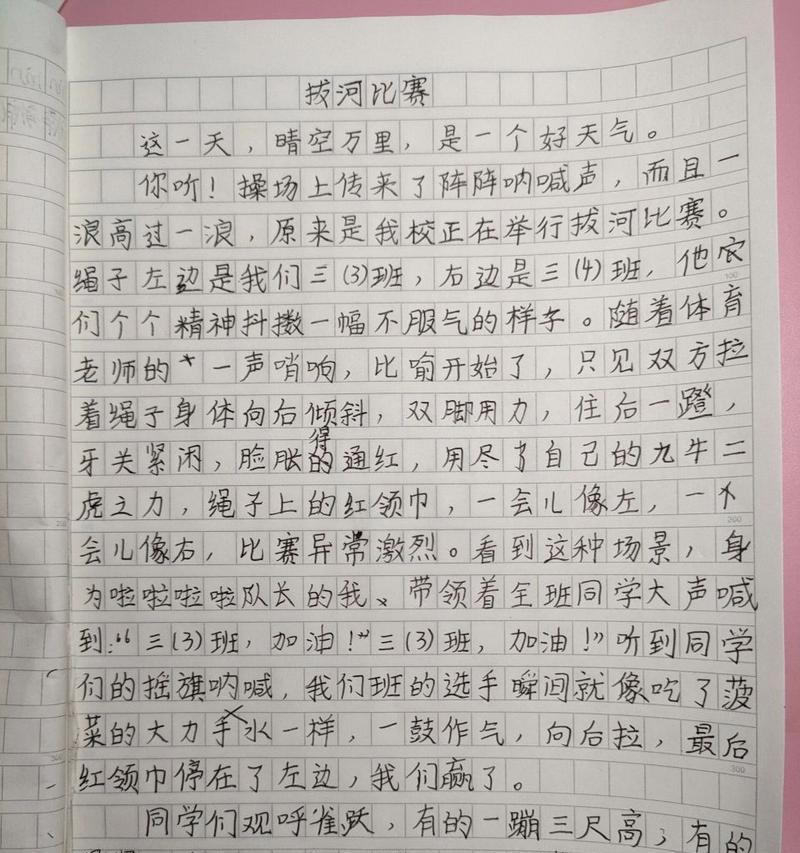 拔河比赛
这一天，晴空万里，是一个好天气。
你听！操场上传来了阵阵呐喊声，而且一
浪高过一浪，原来是我校正在举行拔河比赛。
绳子左边是我们三(3)班，右边是三(4)班，他
们个个精神抖擞一幅不服气的样子。随着体育
老师的一声哨响，比喻开始了，只见双方拉
着绳子身体向后倾斜，双脚用力，往后一蹬，
牙关紧闭，脸胀得通红，用尽了自己的九牛二
虎之力，绳子上的红领巾，一会儿像左，一
会儿像右，比赛异常激烈。看到这种场景，身
为啦啦啦啦队长的我、带领着全班同学大声喊
到：“三(3)班，加油！”三(3)班，加油！”听到同学
们的摇旗呐喊，我们班的选手瞬间就像吃了菠
菜的大力水一样，一鼓作气，向后拉，最后
红领巾停在了左边，我们赢了。
同学们观呼雀跃，有的一蹦三尺高，有的
100
200
300